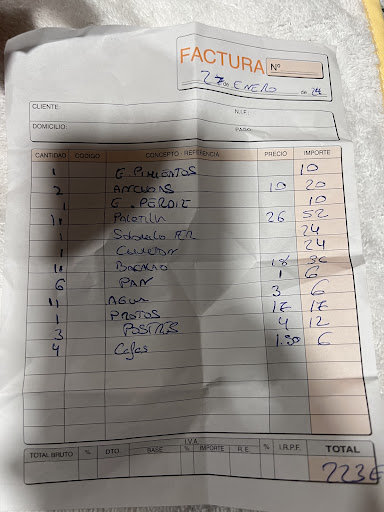 FACTURA Nº
27 de ENERO de 24
CLIENTE: N.I.F.:
DOMICILIO:
CANTIDAD CODIGO CONCEPTO - REFERENCIA PRECIO IMPORTE
1 E. PIMIENTOS 10
2 ANCHOAS 10 20
1 E. PERDIZ 10
11 26 52
1 24
1 CHULETON 24
11 BACALAO 18 36
6 PAN 1 6
11 AGUA 3 6
1 PROTOS 17 17
3 POSTRES 4 12
4 Cafes 1.50 6
I.V.A.
TOTAL BRUTO % DTO. BASE % IMPORTE R.E. % I.R.P.F. TOTAL
223€